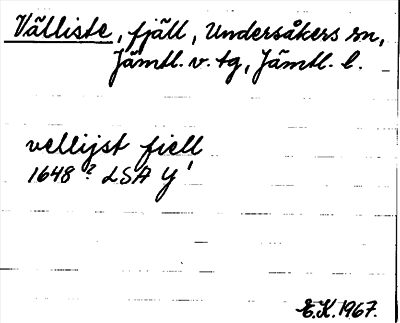 Välliste, fjäll, Undersåkers sn,
Jämtl. v. tg, Jämtl. l.
vellijst fiell
1648? LSA Y'
E.K. 1967.